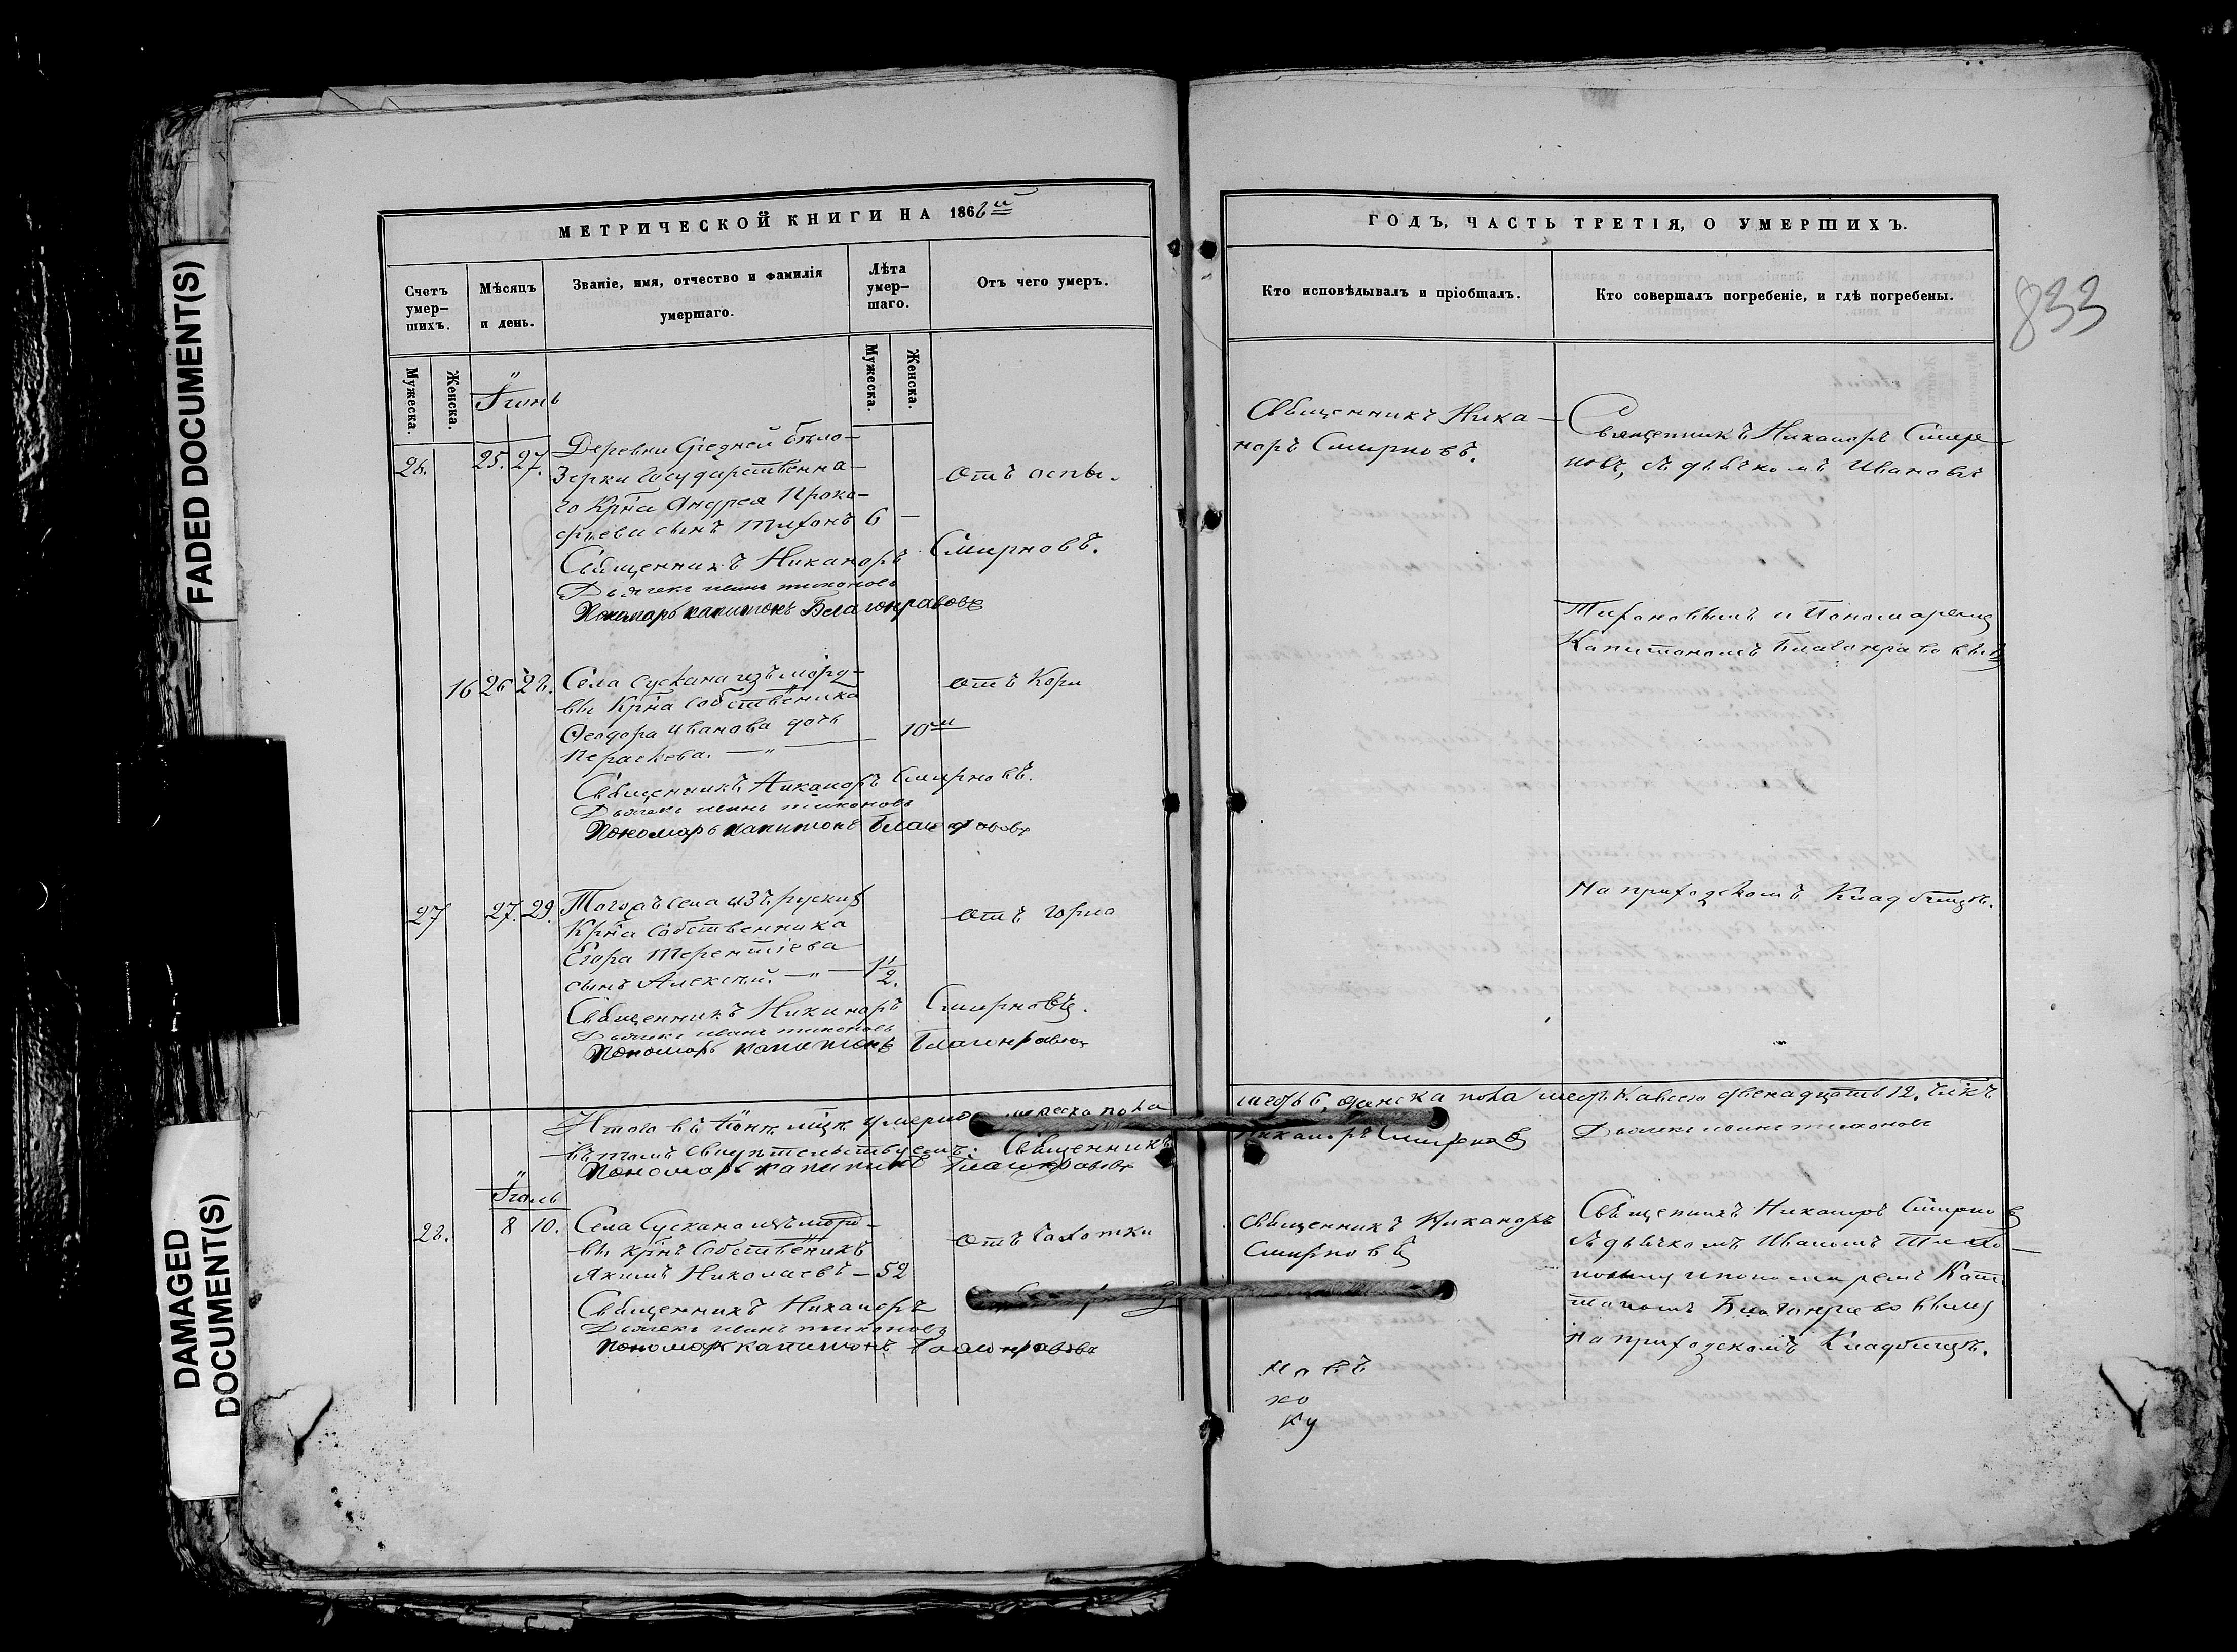 FADED DOCUMENT(S)
DAMAGED
DOCUMENT(S)
МЕТРИЧЕСКОЙ КНИГИ НА 186
Счетъ
умер-
шихъ.
Мѣсяцъ
и день.
Званіе, имя, отчество и фамилія
умершаго.
Лѣта
умер-
шаго.
Отъ чего умеръ.
Мужеска.
Женска.
Мужеска.
Женска.
Іюнь
26. 25. 27. Деревни Средней Бѣло-
зерки Государственна-
го Кр҃на Андрея Проко-
фьева сынъ Тихонъ 6 — отъ оспы.
Священникъ Никаноръ Смирновъ.
Дьячекъ иванъ тихоновъ
Пономарь капитонъ Благонравовъ
16 26 28. Села Сускана изъ морд-
вы Кр҃на Собственника
Ѳеодора Иванова дочь
Параскева. — " — 10 отъ Кори
Священникъ Никаноръ Смирновъ.
Дьячекъ иванъ тихоновъ
Пономарь капитонъ Благонравовъ
27 27. 29. Тогожъ села изъ рускихъ
Кр҃на Собственника
Егора Терентіева
сынъ Алексѣй. — " — 1/2. отъ горла
Священникъ Никаноръ Смирновъ.
Дьячекъ иванъ тихоновъ
Пономарь капитонъ Благонравовъ
Итого въ Іюнѣ м҃цѣ умерло мужеска пола
въ томъ свидѣтельствуемъ: Священникъ
Пономарь капитонъ Благонравовъ
Іюль
28. 8 10. Села Сускана изъ морд-
вы кр҃нъ Собственникъ
Якимъ Николаевъ — 52 отъ Чахотки
Священникъ Никаноръ
Дьячекъ иванъ тихоновъ
Пономарь капитонъ Благонравовъ
ГОДЪ, ЧАСТЬ ТРЕТІЯ, О УМЕРШИХЪ.
Кто исповѣдывалъ и пріобщалъ.
Кто совершалъ погребеніе, и гдѣ погребены.
833
Священникъ Ника-
норъ Смирновъ.
Священникъ Никаноръ Смир-
новъ, съ дьячкомъ Иваномъ
Тихоновымъ и Пономаремъ
Капитономъ Благонравовымъ
на приходскомъ Кладбищѣ.
шесть 6, женска пола шесть 6 а всего двенадцать 12. челкъ
Никаноръ Смирновъ Дьячекъ иванъ тихоновъ
Священникъ Никаноръ
Смирновъ
Священникъ Никаноръ Смирновъ
съ дьячкомъ Иваномъ Тихо-
новымъ и пономаремъ Капи
тономъ Благонравовымъ
на приходскомъ Кладбищѣ.
новъ
ко
ку